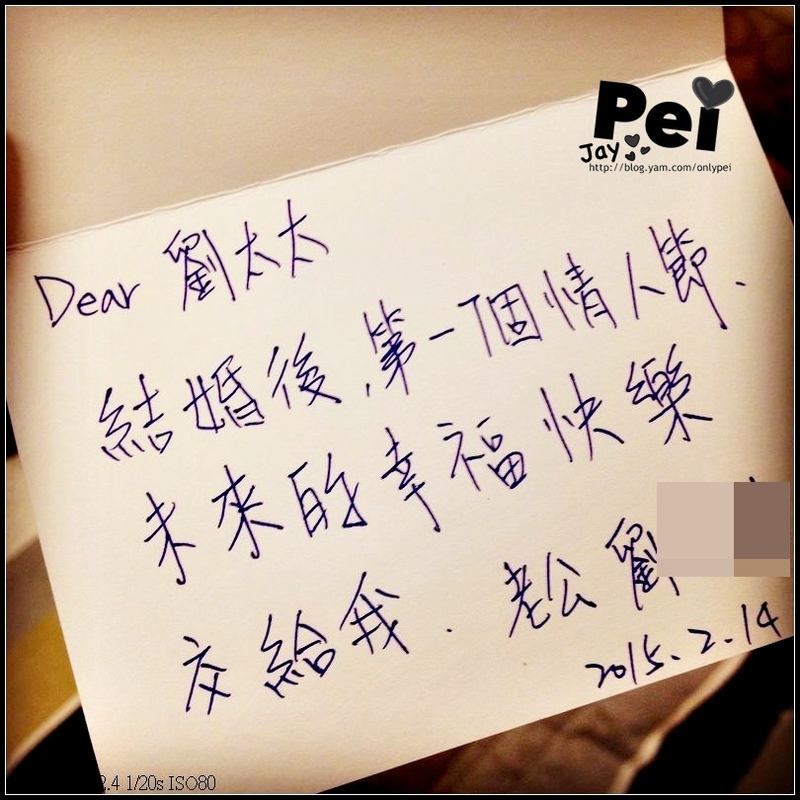 Pei
Jay
http://blog.yam.com/onlypei
Dear 劉太太
結婚後,第一個情人節.
未來的幸福快樂
交給我. 老公 劉
2015.2.14
2.4 1/20s ISO80